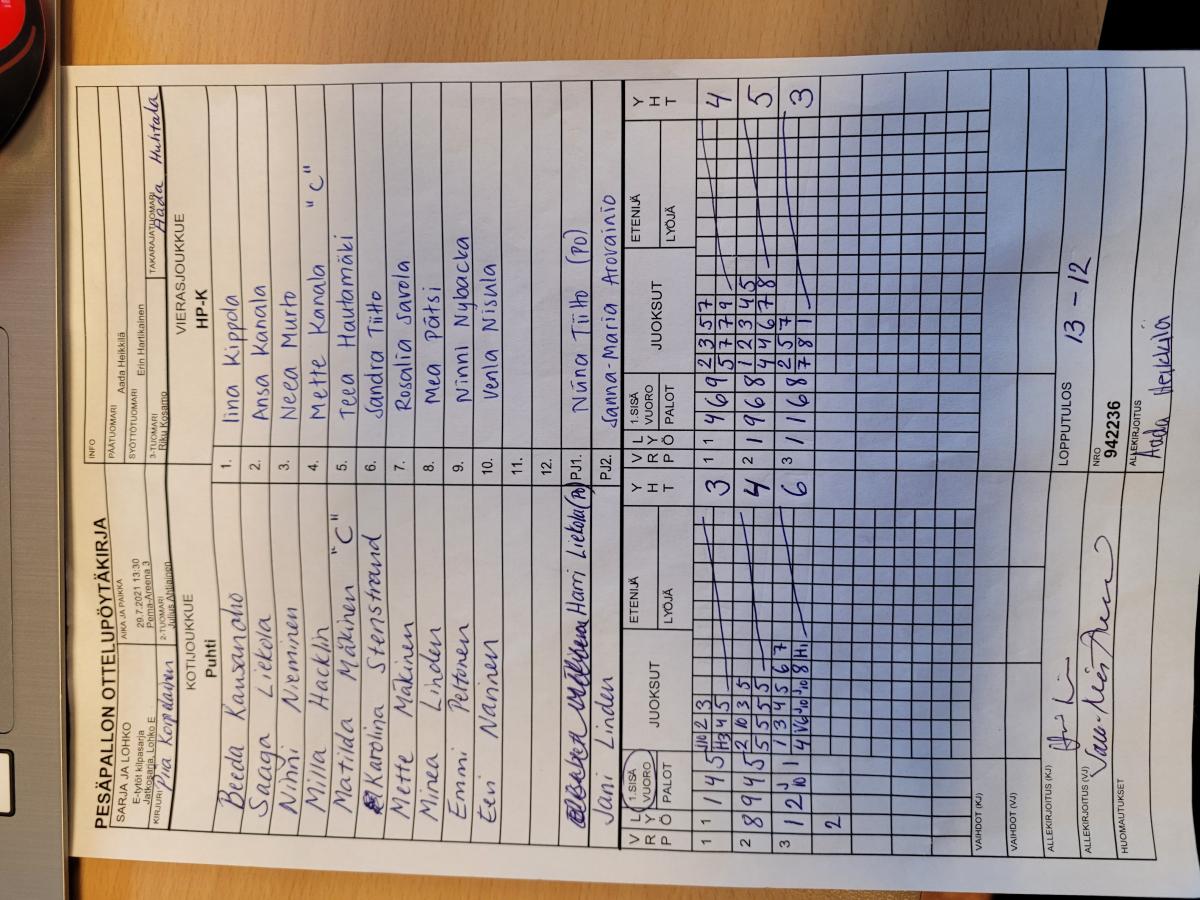 PESÄPALLON OTTELUPÖYTÄKIRJA
SARJA JA LOHKO
E-tytöt kilpasarja
Jatkosarja, Lohko E
AIKA JA PAIKKA
29.7.2021 13:30
Perna-Areena 3
KIRJURI Piia Korpelainen
2-TUOMARI
Julius Ahtiainen
INFO
PÄÄTUOMARI Aada Heikkilä
SYÖTTÖTUOMARI Erin Hartikainen
3-TUOMARI
Riku Kosamo
TAKARAJATUOMARI
Aada Huhtala
KOTIJOUKKUE
Puhti
VIERASJOUKKUE
HP-K
Beeda Kansanaho 1. Iina Kippola
Saaga Liekola 2. Ansa Kanala
Nihni Nieminen 3. Neea Murto
Milla Hacklin 4. Mette Kanala "C"
Matilda Mäkinen "C" 5. Teea Hautamäki
Karolina Stenstrand 6. Sandra Tiitto
Mette Mäkinen 7. Rosalia Savola
Minea Linden 8. Mea Pätsi
Emmi Peltonen 9. Ninni Nybacka
Eevi Narinen 10. Venla Nisula
11.
12.
Harri Liekola (PO) PJ1. Niina Tiitto (PO)
Jani Linden PJ2. Sanna-Maria Arovainio
V R P L Y Ö 1.SISÄ VUORO PALOT JUOKSUT ETENIJÄ LYÖJÄ Y H T V R P L Y Ö 1.SISÄ VUORO PALOT JUOKSUT ETENIJÄ LYÖJÄ Y H T
1 1 1 4 5 3 1 1 4 6 9 2 3 5 7 4
5 7 7 9
2 8 9 4 5 2 10 3 5 4 2 1 9 6 8 1 2 3 4 5 5
5 5 5 5 4 4 6 7 8
3 1 2 1 1 3 4 5 6 7 6 3 1 1 6 8 2 5 7 3
7 8 1
2
VAIHDOT (KJ)
VAIHDOT (VJ)
ALLEKIRJOITUS (KJ)
LOPPUTULOS 13 - 12
ALLEKIRJOITUS (VJ)
NRO
942236
HUOMAUTUKSET
ALLEKIRJOITUS
Aada Heikkilä